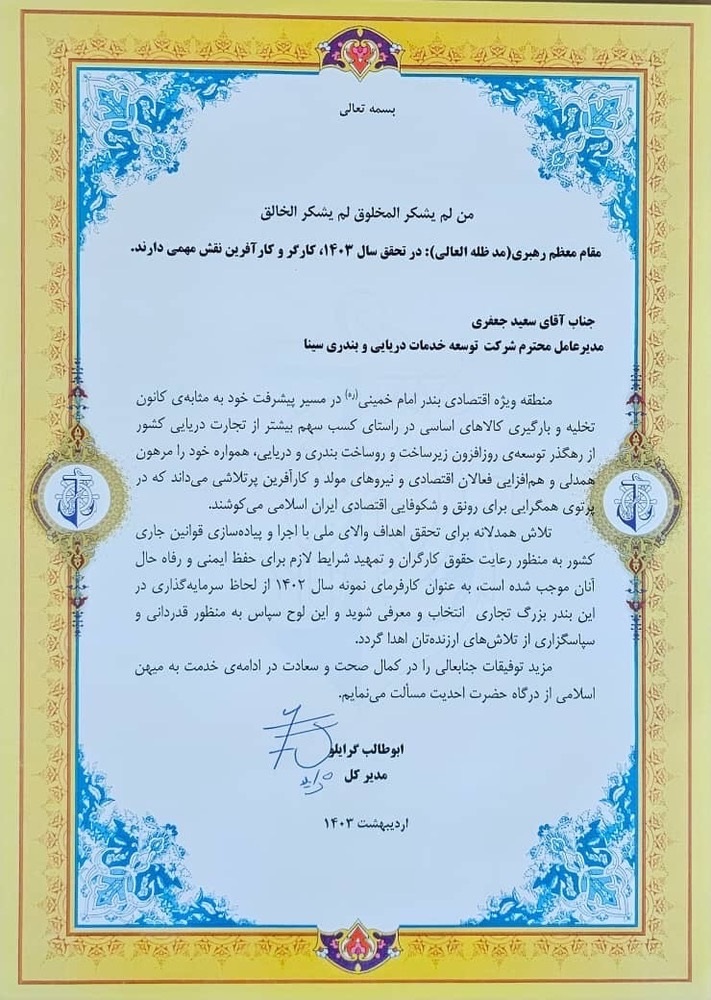 بسمه تعالی
من لم یشکر المخلوق لم یشکر الخالق
مقام معظم رهبری(مد ظله العالی): در تحقق سال ۱۴۰۳، کارگر و کارآفرین نقش مهمی دارند.
جناب آقای سعید جعفری
مدیرعامل محترم شرکت توسعه خدمات دریایی و بندری سینا
منطقه ویژه اقتصادی بندر امام خمینی(ره) در مسیر پیشرفت خود به مثابه‌ی کانون
تخلیه و بارگیری کالاهای اساسی در راستای کسب سهم بیشتر از تجارت دریایی کشور
از رهگذر توسعه‌ی روزافزون زیرساخت و روساخت بندری و دریایی، همواره خود را مرهون
همدلی و هم‌افزایی فعالان اقتصادی و نیروهای مولد و کارآفرین پرتلاشی می‌داند که در
پرتوی همگرایی برای رونق و شکوفایی اقتصادی ایران اسلامی می‌کوشند.
تلاش همدلانه برای تحقق اهداف والای ملی با اجرا و پیاده‌سازی قوانین جاری
کشور به منظور رعایت حقوق کارگران و تمهید شرایط لازم برای حفظ ایمنی و رفاه حال
آنان موجب شده است، به عنوان کارفرمای نمونه سال ۱۴۰۲ از لحاظ سرمایه‌گذاری در
این بندر بزرگ تجاری انتخاب و معرفی شوید و این لوح سپاس به منظور قدردانی و
سپاسگزاری از تلاش‌های ارزنده‌تان اهدا گردد.
مزید توفیقات جنابعالی را در کمال صحت و سعادت در ادامه‌ی خدمت به میهن
اسلامی از درگاه حضرت احدیت مسألت می‌نمایم.
ابوطالب گرایلو
مدیر کل
اردیبهشت ۱۴۰۳